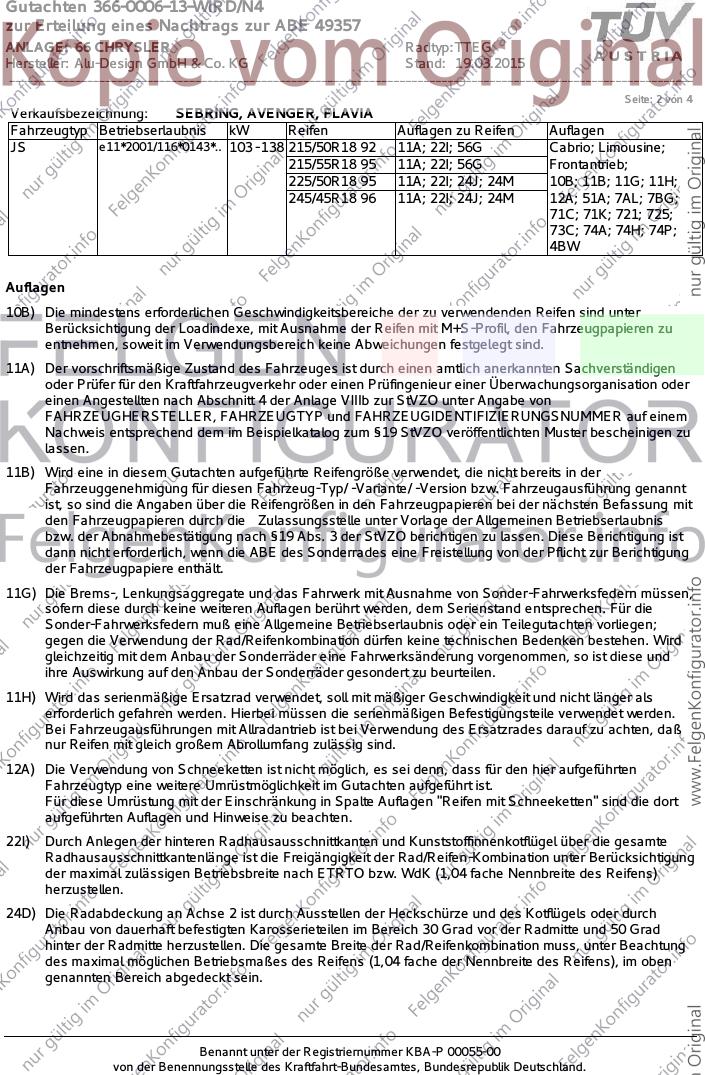 Gutachten 366-0006-13-WIRD/N4
zur Erteilung eines Nachtrags zur ABE 49357
ANLAGE: 66 CHRYSLER
Radtyp: TTEG
Hersteller: Alu-Design GmbH & Co. KG
Stand: 19.03.2015
TÜV
AUSTRIA
Kopie vom Original
Seite: 2 von 4
Verkaufsbezeichnung: SEBRING, AVENGER, FLAVIA
Fahrzeugtyp Betriebserlaubnis kW Reifen Auflagen zu Reifen Auflagen
JS e11*2001/116*0143*.. 103-138 215/50R18 92 11A; 22I; 56G Cabrio; Limousine;
215/55R18 95 11A; 22I; 56G Frontantrieb;
225/50R18 95 11A; 22I; 24J; 24M 10B; 11B; 11G; 11H;
245/45R18 96 11A; 22I; 24J; 24M 12A; 51A; 7AL; 7BG;
71C; 71K; 721; 725;
73C; 74A; 74H; 74P;
4BW
Auflagen
10B) Die mindestens erforderlichen Geschwindigkeitsbereiche der zu verwendenden Reifen sind unter
Berücksichtigung der Loadindexe, mit Ausnahme der Reifen mit M+S-Profil, den Fahrzeugpapieren zu
entnehmen, soweit im Verwendungsbereich keine Abweichungen festgelegt sind.
11A) Der vorschriftsmäßige Zustand des Fahrzeuges ist durch einen amtlich anerkannten Sachverständigen
oder Prüfer für den Kraftfahrzeugverkehr oder einen Prüfingenieur einer Überwachungsorganisation oder
einen Angestellten nach Abschnitt 4 der Anlage VIIIb zur StVZO unter Angabe von
FAHRZEUGHERSTELLER, FAHRZEUGTYP und FAHRZEUGIDENTIFIZIERUNGSNUMMER auf einem
Nachweis entsprechend dem im Beispielkatalog zum §19 StVZO veröffentlichten Muster bescheinigen zu
lassen.
11B) Wird eine in diesem Gutachten aufgeführte Reifengröße verwendet, die nicht bereits in der
Fahrzeuggenehmigung für diesen Fahrzeug-Typ/ -Variante/ -Version bzw. Fahrzeugausführung genannt
ist, so sind die Angaben über die Reifengrößen in den Fahrzeugpapieren bei der nächsten Befassung mit
den Fahrzeugpapieren durch die Zulassungsstelle unter Vorlage der Allgemeinen Betriebserlaubnis
bzw. der Abnahmebestätigung nach §19 Abs. 3 der StVZO berichtigen zu lassen. Diese Berichtigung ist
dann nicht erforderlich, wenn die ABE des Sonderrades eine Freistellung von der Pflicht zur Berichtigung
der Fahrzeugpapiere enthält.
11G) Die Brems-, Lenkungsaggregate und das Fahrwerk mit Ausnahme von Sonder-Fahrwerksfedern müssen,
sofern diese durch keine weiteren Auflagen berührt werden, dem Serienstand entsprechen. Für die
Sonder-Fahrwerksfedern muß eine Allgemeine Betriebserlaubnis oder ein Teilegutachten vorliegen;
gegen die Verwendung der Rad/Reifenkombination dürfen keine technischen Bedenken bestehen. Wird
gleichzeitig mit dem Anbau der Sonderräder eine Fahrwerksänderung vorgenommen, so ist diese und
ihre Auswirkung auf den Anbau der Sonderräder gesondert zu beurteilen.
11H) Wird das serienmäßige Ersatzrad verwendet, soll mit mäßiger Geschwindigkeit und nicht länger als
erforderlich gefahren werden. Hierbei müssen die serienmäßigen Befestigungsteile verwendet werden.
Bei Fahrzeugausführungen mit Allradantrieb ist bei Verwendung des Ersatzrades darauf zu achten, daß
nur Reifen mit gleich großem Abrollumfang zulässig sind.
12A) Die Verwendung von Schneeketten ist nicht möglich, es sei denn, dass für den hier aufgeführten
Fahrzeugtyp eine weitere Umrüstmöglichkeit im Gutachten aufgeführt ist.
Für diese Umrüstung mit der Einschränkung in Spalte Auflagen "Reifen mit Schneeketten" sind die dort
aufgeführten Auflagen und Hinweise zu beachten.
22I) Durch Anlegen der hinteren Radhausausschnittkanten und Kunststoffinnenkotflügel über die gesamte
Radhausausschnittkantenlänge ist die Freigängigkeit der Rad/Reifen-Kombination unter Berücksichtigung
der maximal zulässigen Betriebsbreite nach ETRTO bzw. WdK (1,04 fache Nennbreite des Reifens)
herzustellen.
24D) Die Radabdeckung an Achse 2 ist durch Ausstellen der Heckschürze und des Kotflügels oder durch
Anbau von dauerhaft befestigten Karosserieteilen im Bereich 30 Grad vor der Radmitte und 50 Grad
hinter der Radmitte herzustellen. Die gesamte Breite der Rad/Reifenkombination muss, unter Beachtung
des maximal möglichen Betriebsmaßes des Reifens (1,04 fache der Nennbreite des Reifens), im oben
genannten Bereich abgedeckt sein.
FELGEN
KONFIGURATOR
FelgenKonfigurator.info
nur gültig im Original
www.FelgenKonfigurator.info
Benannt unter der Registriernummer KBA-P 00055-00
von der Benennungsstelle des Kraftfahrt-Bundesamtes, Bundesrepublik Deutschland.